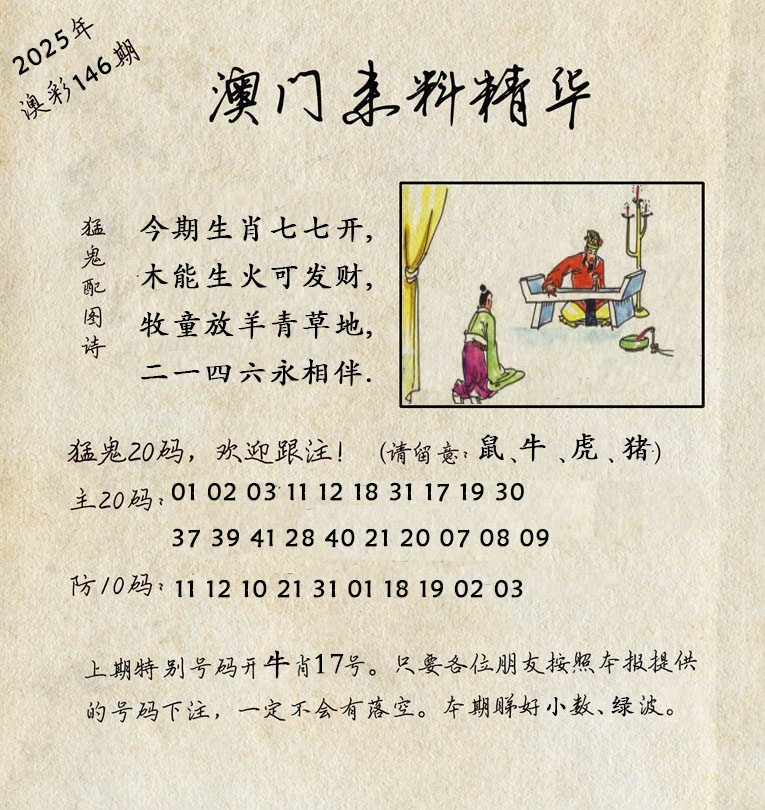 2025年
澳彩146期
澳门来料精华
猛鬼配图诗
今期生肖七七开,
木能生火可发财,
牧童放羊青草地,
二一四六永相伴.
猛鬼20码，欢迎跟注！ (请留意：鼠、牛、虎、猪)
主20码：01 02 03 11 12 18 31 17 19 30
37 39 41 28 40 21 20 07 08 09
防10码：11 12 10 21 31 01 18 19 02 03
上期特别号码开牛肖17号。只要各位朋友按照本报提供
的号码下注，一定不会有落空。本期睇好小数、绿波。